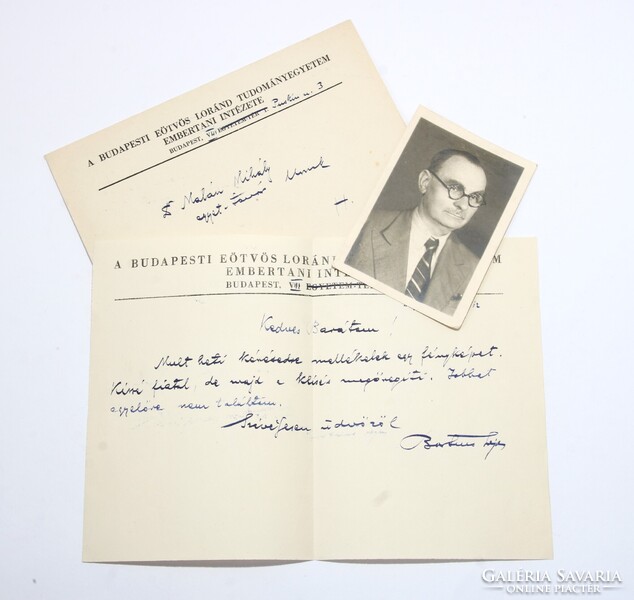 A BUDAPESTI EÖTVÖS LORÁND TUDOMÁNYEGYETEM
EMBERTANI INTÉZETE
BUDAPEST, VIII EGYETEM-TÉR Puskin u. 3
Malán Mihály
egyet. tanár
A BUDAPESTI EÖTVÖS LORÁN M
EMBERTANI INT
BUDAPEST, VIII EGYETEM-TÉ
Kedves Barátom!
Mult heti kérésedre mellékelek egy fényképet.
Kissé fiatal, de majd a klisés megöregíti. Jobbat
egyelőre nem találtam.
Szívélyesen üdvözöl
Bartucz Lajos
GALÉRIA SAVARIA
ONLINE PIACTÉR